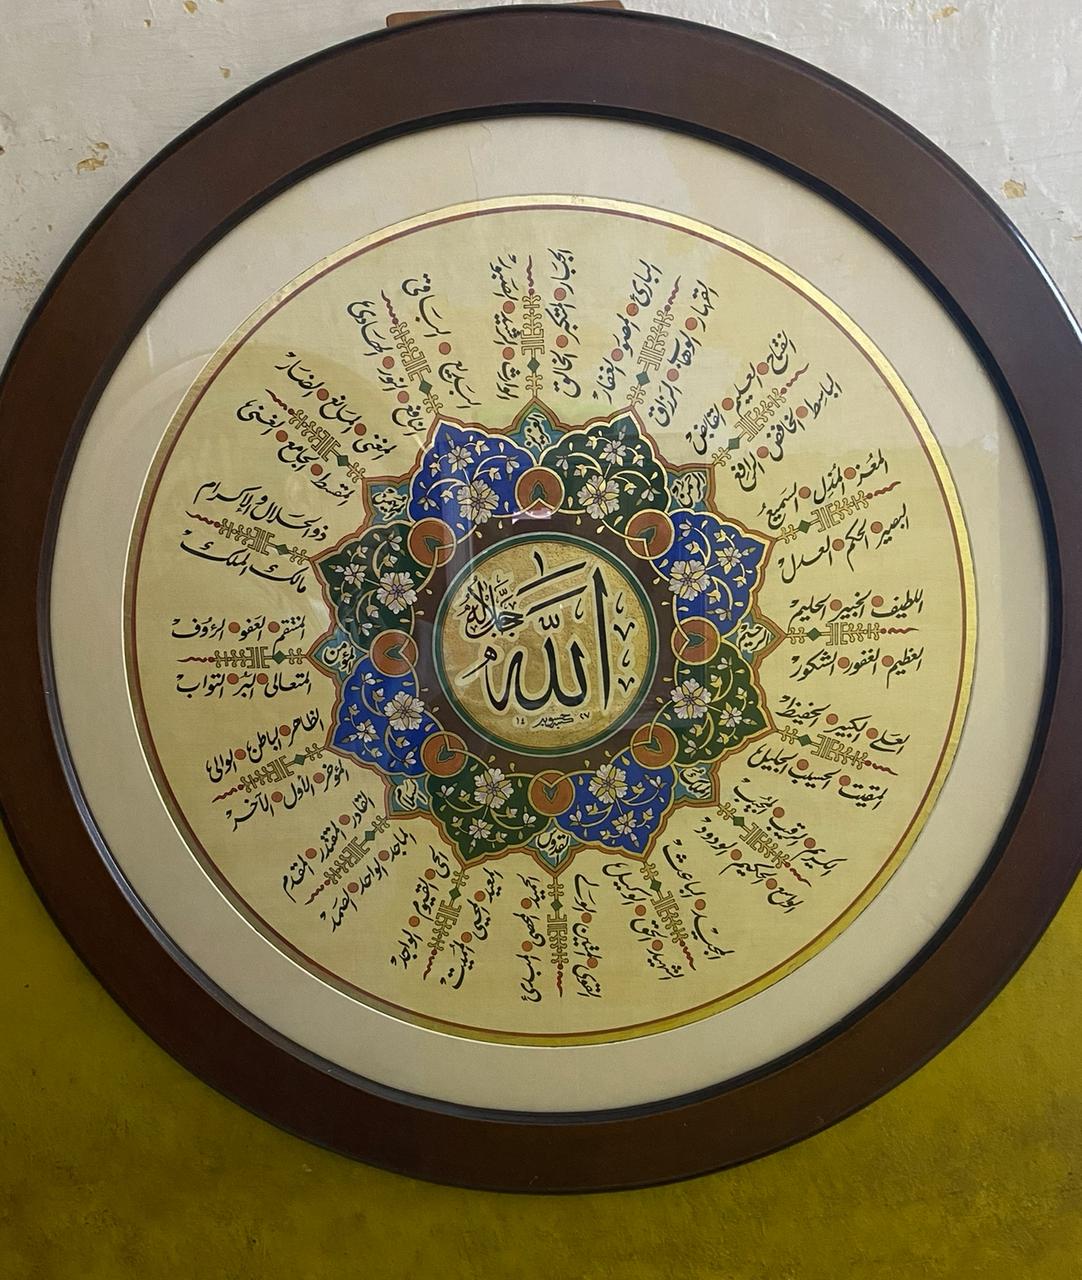 الله
جل جلاله
العزيز
الجبار المتكبر الخالق
البارئ المصور الغفار
القهار الوهاب الرزاق
الفتاح العليم القابض
الباسط الخافض الرافع
المعز المذل السميع
البصير الحكم العدل
اللطيف الخبير الحليم
العظيم الغفور الشكور
العلي الكبير الحفيظ
المقيت الحسيب الجليل
الكريم الرقيب المجيب
الواسع الحكيم الودود
المجيد الباعث
الشهيد الحق الوكيل
القوي المتين الولي
المعيد المحيي المميت
الحي القيوم الواجد
الماجد الواحد الصمد
القادر المقتدر المقدم
المؤخر الأول الآخر
الظاهر الباطن الوالي
المتعالي البر التواب
المنتقم العفو الرؤوف
مالك الملك
ذو الجلال والإكرام
المقسط الجامع الغني
المغني المانع الضار
النافع النور الهادي
البديع الباقي
الوارث الرشيد الصبور
القدوس
المؤمن